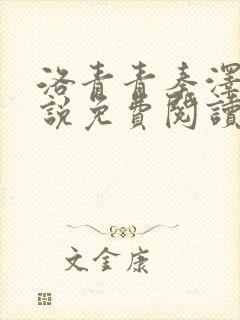 洛青青秦澤
說免費閱讀
文金康